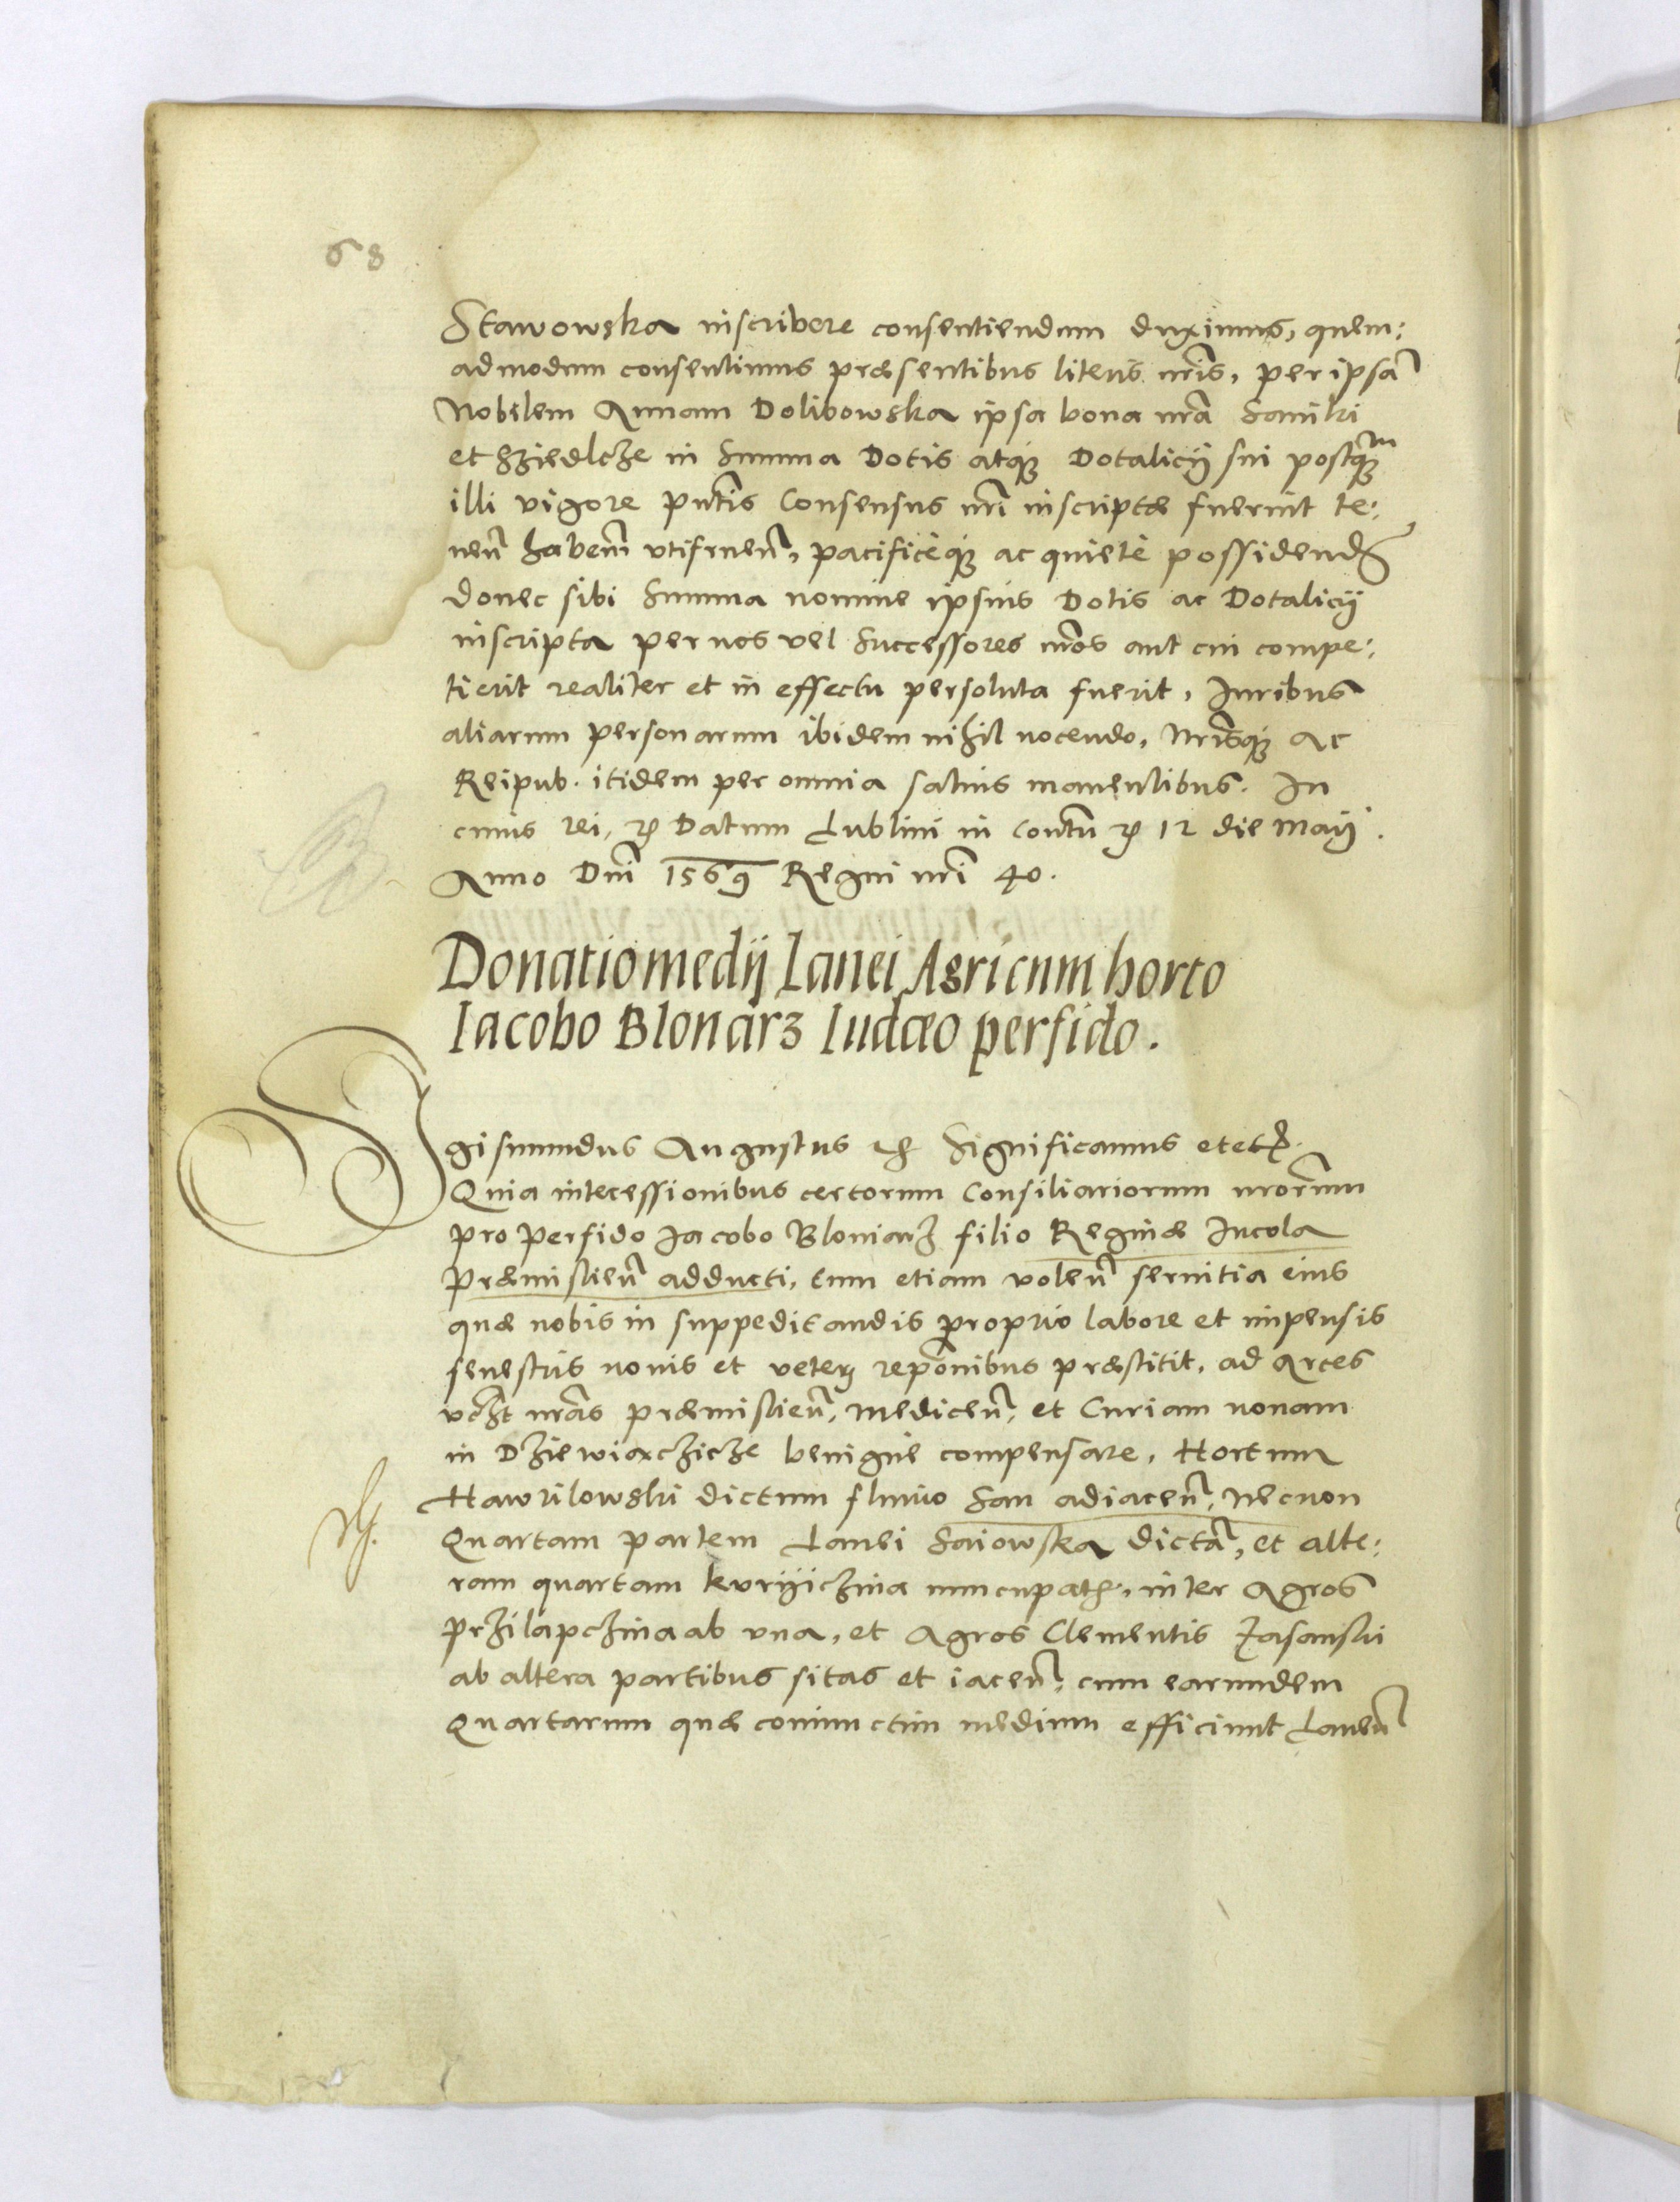 68
Stawowska inscribere consentiendum duximus, quem:
admodum consentimus præsentibus literis nris, per ipsã
Nobilem Annam Dolibowska ipsa bona nrã Samiki
et Sziedlcze in Summa Dotis atq3 Dotalicij sui postq3m
illi vigore pntis Consensus nri inscriptæ fuerint te:
neñ habeñ utifrueñ, pacificèq3 ac quietè possidend
donec sibi Summa nomine ipsius Dotis ac Dotalicij
inscripta per nos vel Successores nros aut cui compe:
tierit realiter et in effectu persoluta fuerit, Iuribus
aliarum personarum ibidem nihil nocendo, Nrisq3 ac
Reipub. itidem per omnia saluis manentibus. In
cuius rei, etc Datum Lublini in Contu etc 12 die Maij.
Anno Dni 1569 Regni nri 40.
Donatio medij Lanei Agri cum horto
Iacobo Blonarz Iudæo perfido.
Sigismundus Augustus etc Significamus et etc.
Quia intecessionibus certorum Consiliariorum nrorum
pro Perfido Jacobo Bloniarz filio Reginæ Incola
Præmislieñ adducti, tum etiam voleñ seruitia eius
quæ nobis in suppeditandis proprio labore et impensis
fenestris nouis et veterũ reponibus præstitit, ad Arces
vczt nras Præmislieñ, Mediceñ, et Curiam nouam
in Dziewiaczicze benignè compensare, Hortum
Hawrilowski dictum fluuio San adiaceñ, Necnon
Quartam partem Lanei Saiowska dictã, et alte:
ram quartam kvrijiczina nuncupat, inter Agros
Przilapczina ab una, et Agros Clementis Zasanski
ab altera partibus sitas et iaceñ, cum earundem
Quartarum quæ coniunctim medium efficiunt Laneũ